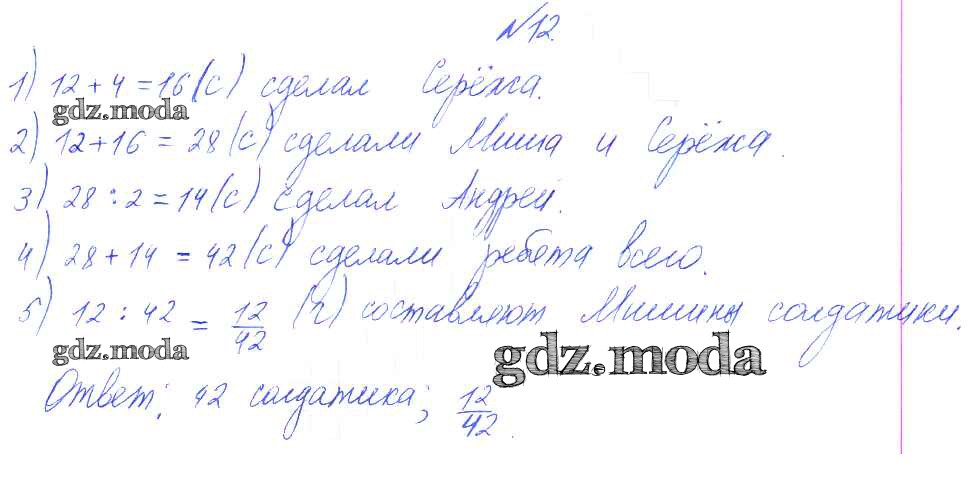 №12.
1) 12 + 4 = 16 (с) сделал Серёжа.
gdz.moda
2) 12 + 16 = 28 (с) сделали Миша и Серёжа.
3) 28 : 2 = 14 (с) сделал Андрей.
4) 28 + 14 = 42 (с) сделали ребята всего.
5) 12 : 42 = 12/42 (ч) составляют Мишины солдатики.
gdz.moda
gdz.moda
Ответ: 42 солдатика; 12/42.